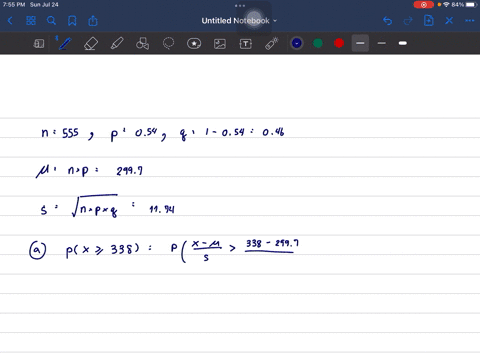 7:55 PM Sun Jul 24
84%
Untitled Notebook
n = 555 , p = 0.54 , q = 1 - 0.54 = 0.46
μ = n * p = 299.7
s = √n * p * q = 11.74
(a) p( x ≥ 338 ) = P( x - μ / s > 338 - 299.7